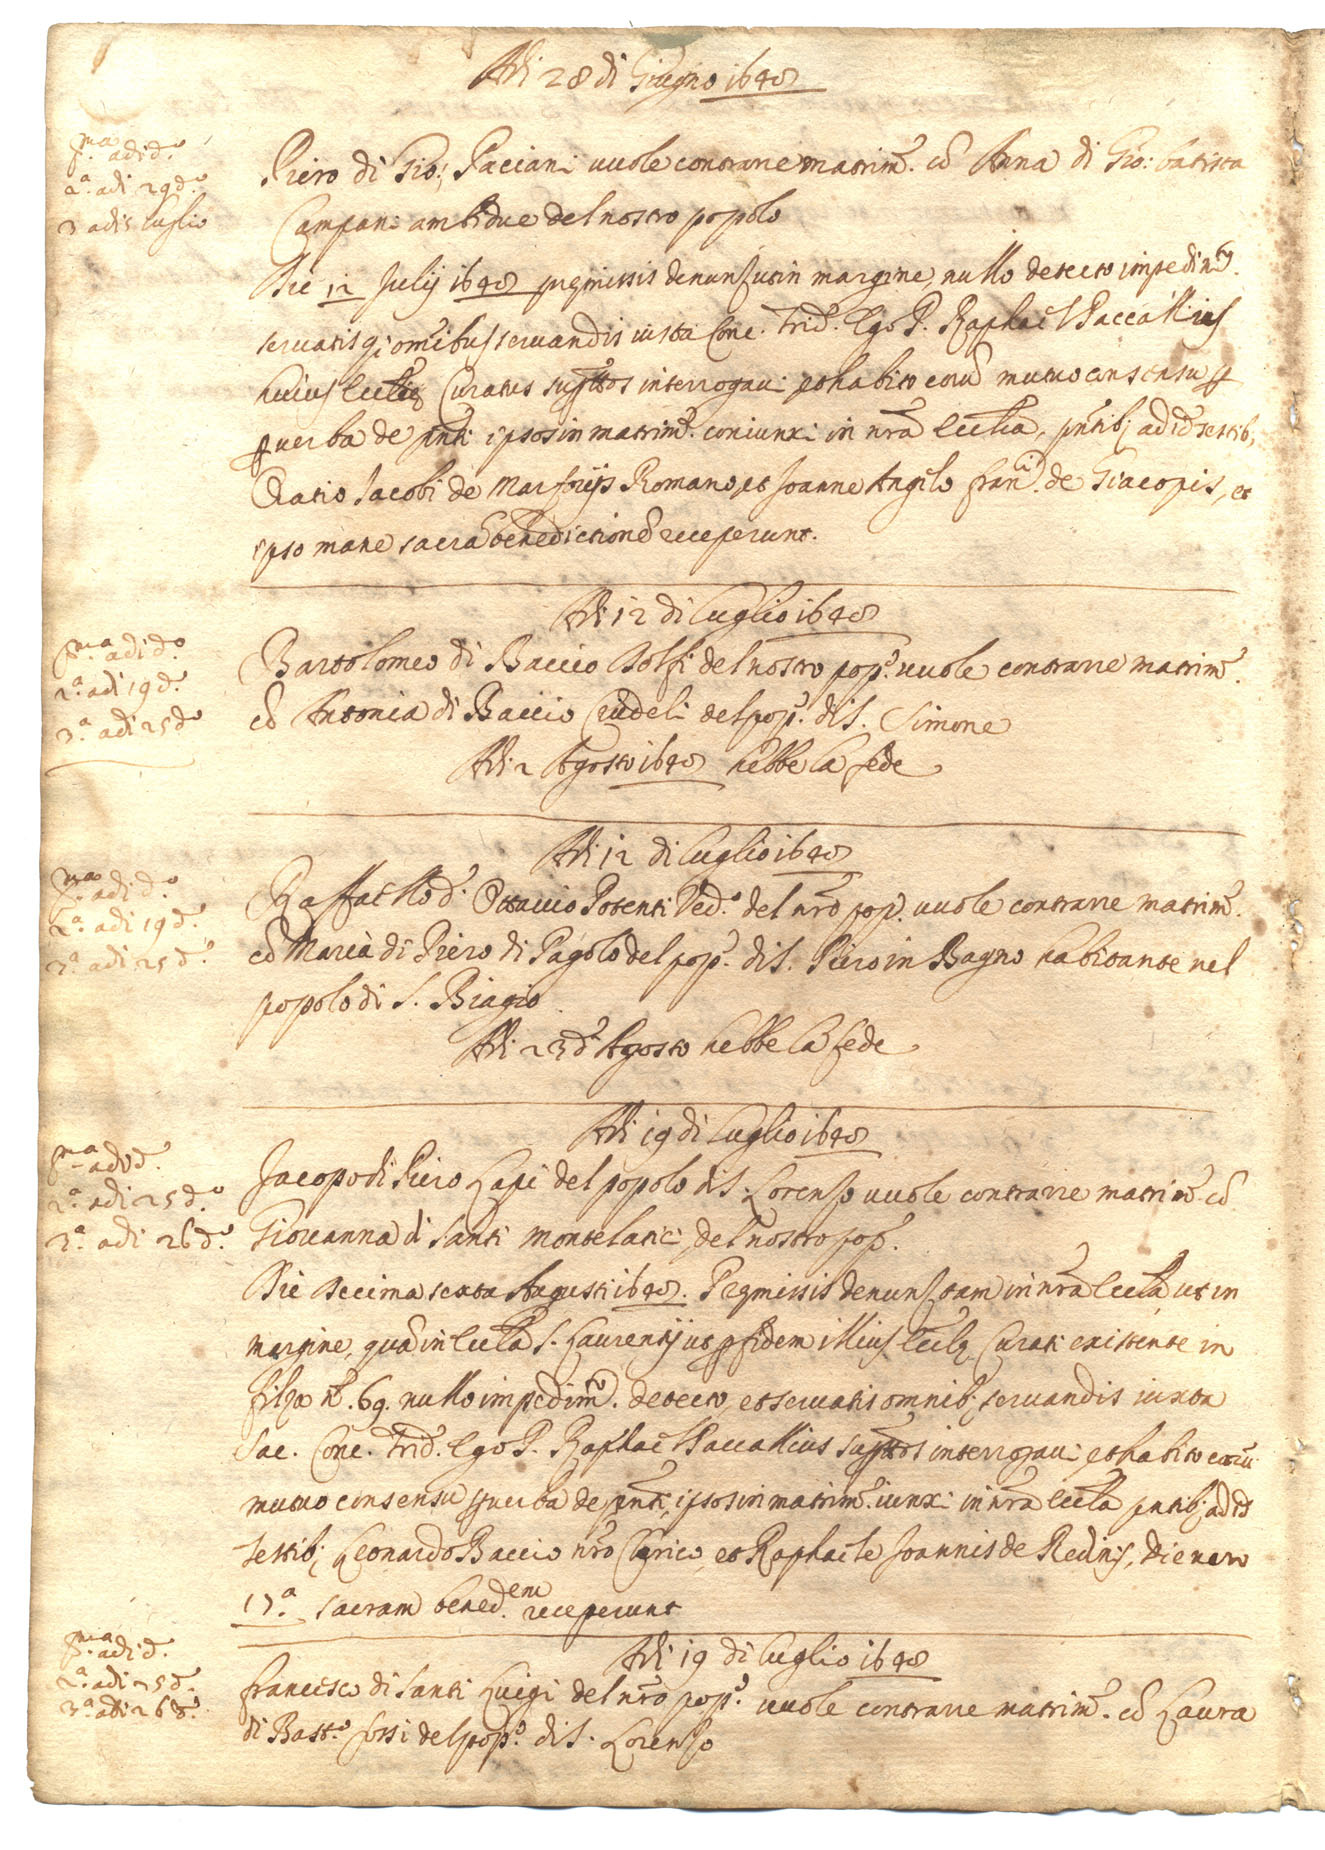 Adi 28 di Giugno 1648
p.ma adi d.o
2.a adi 29 d.o
3 adi 5 luglio
Piero di Gio: Paciani vuole contrarre matrim.o co Anna di Gio: batista
Campani ambidue del nostro popolo
Die 12 Julij 1648 premissis denunz ut in margine, nullo detecto impedim.to
servatisq; omibus servandis iuxta Conc. Trid. Ego P. Raphael Vaccallius
huius Ecclię Curatus supttos interrogavi et habito eorũ mutuo consensu p
p verba de pnti ipsos in matrim.o coniunxi in nrã Ecclia, pntib; ad id testib;
Oratio Jacobi de Marforijs Romano, et Joanne Angelo Fran.ci de Giacopis, et
ipso mane sacrã benedictionẽ receperunt.
Adi 12 di luglio 1648
p.ma adi d.o
2.a adi 19 d.o
3.a adi 25 d.o
Bartolomeo di Baccio Dolfi del nostro pop.o vuole contrarre matrim.o
cõ Antonia di Baccio Crudeli del pop.o di S. Simone
Adi 2 Agosto 1648 hebbe la fede
Adi 12 di luglio 1648
p.ma adi d.o
2.a adi 19 d.o
3.a adi 25 d.o
Raffaello d. Ottavio Potenti Ved.o del nrõ pop. vuole contrarre matrim.o
cõ Maria di Piero di Pagolo del pop.o di S. Piero in Bagno habitante nel
popolo di S. Biagio
Adi 23 d.o Agosto hebbe la fede
Adi 19 di luglio 1648
p.ma adi d.
2.a adi 25 d.o
3.a adi 26 d.o
Jacopo di Piero Lapi del popolo di S. Lorenzo vuole contrarre matrim.o cõ
Giovanna di Santi Montelatici del nostro pop.o
Die decima sexta Augusti 1648. Premissis denunz tam in nrã Ecclã, ut in
margine, quã in Ecclã S. Laurentij ut p fidem illius Ecclę Curati existente in
filza n.o 69. nullo impedim.to detecto, et servatis omnib; servandis iuxta
Sac. Conc. Trid. Ego P. Raphael Vaccallius supttos interrogavi, et habito eorũ
mutuo consensu p verba de pnti, ipsos in matrim.o iunxi in nrã Ecclã pntib; ad id
testib; Leonardo Baccio nrõ Clerico, et Raphaele Joannis de Redinis, die vero
17.a sacram bened.em receperunt
Adi 19 di luglio 1648
p.ma adi d.
2.a adi 25 d.o
3.a adi 26 d.o
Francesco di Santi Luigi del nrõ pop.o vuole contrarre matrim.o cõ Laura
di Bast.o fossi del pop.o di S. Lorenzo